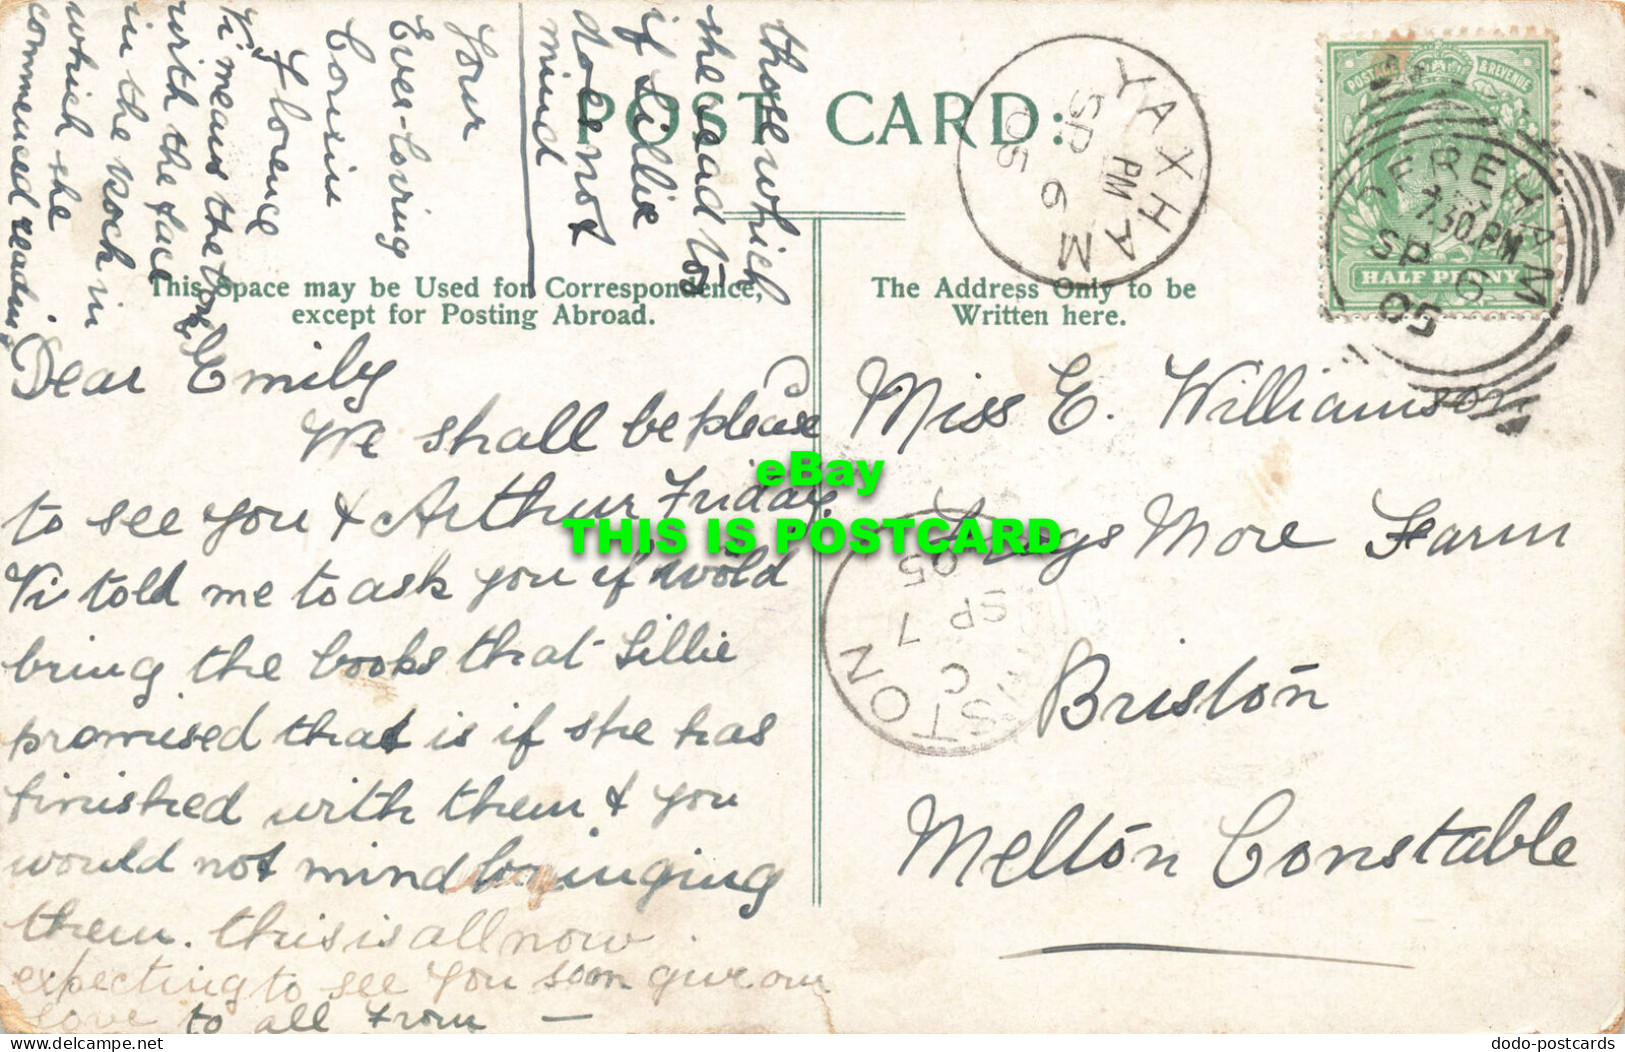 POST CARD:
This Space may be Used for Correspondence,
except for Posting Abroad.
The Address Only to be
Written here.
YAXHAM
PM
SP 6
05
POSTAGE & REVENUE
HALF PENNY
DEREHAM
7.30 PM
SP 6
05
Dear Emily
We shall be please
to see you & Arthur Friday.
Vi told me to ask you if wold
bring the books that Lillie
promised that is if she has
finished with them & you
would not mind bringing
them. this is all now
expecting to see you soon give our
love to all from —
Your
Ever-loving
Cousin
Florence
Vi means the tone
with the face
in the Rock in
which she
commenced reading
those which
she read to
if Lillie
does not
mind
Miss E. Williamson
Frogs More Farm
Briston
Melton Constable
STON
C
SP 7
05
eBay
THIS IS POSTCARD
dodo-postcards